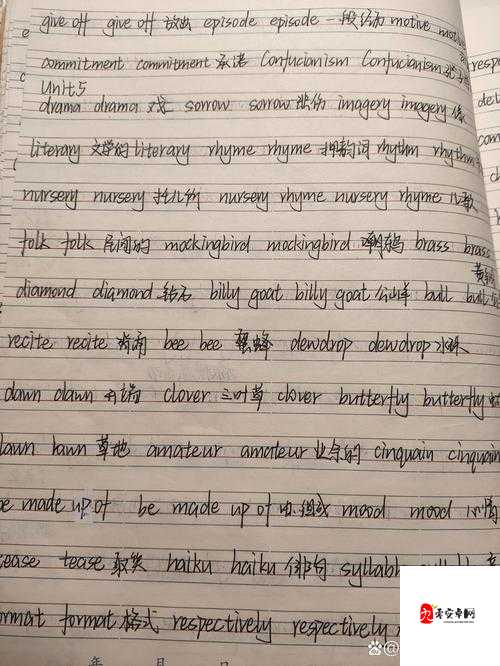 give off give off 放出 episode episode 一段经历 motive
commitment commitment 承诺 Confucianism Confucianism
Unit 5
drama drama 戏 sorrow sorrow 悲伤 imagery imagery
literary 文学的 literary rhyme rhyme 押韵词 rhythm rhythm
nursery nursery 托儿所 nursery rhyme nursery rhyme 儿歌
folk folk 民间的 mockingbird mockingbird 嘲鸫 brass brass
黄铜
diamond diamond 钻石 billy goat billy goat 公山羊 bull
recite recite 背诵 bee bee 蜜蜂 dewdrop dewdrop 水珠
dawn dawn 开端 clover 三叶草 clover butterfly butterfly
lawn lawn 草地 amateur amateur 业余的 cinquain cinquain
be made up of be made up of 由..组成 mood mood 心情
tease tease 取笑 haiku haiku 俳句
format format 格式 respectively respectively
年 月 日